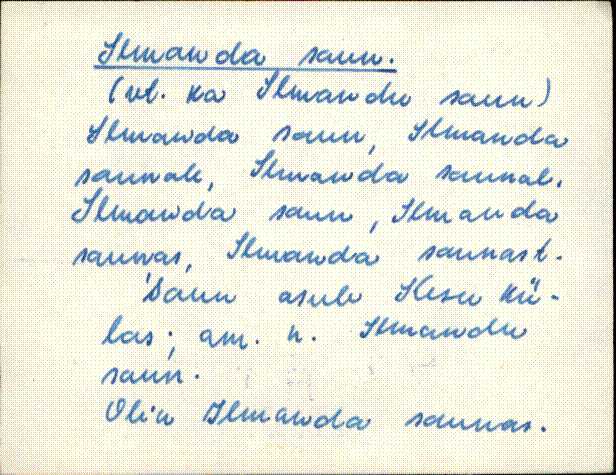 Ilmanda saun.
(vt. ka Ilmandu saun)
Ilmanda saun, Ilmanda
saunale, Ilmanda saunal.
Ilmanda saun, Ilmanda
saunas, Ilmanda saunast.
Saun asub Kesu kü-
las; am. n. Ilmandu
saun.
Olin Ilmanda saunas.